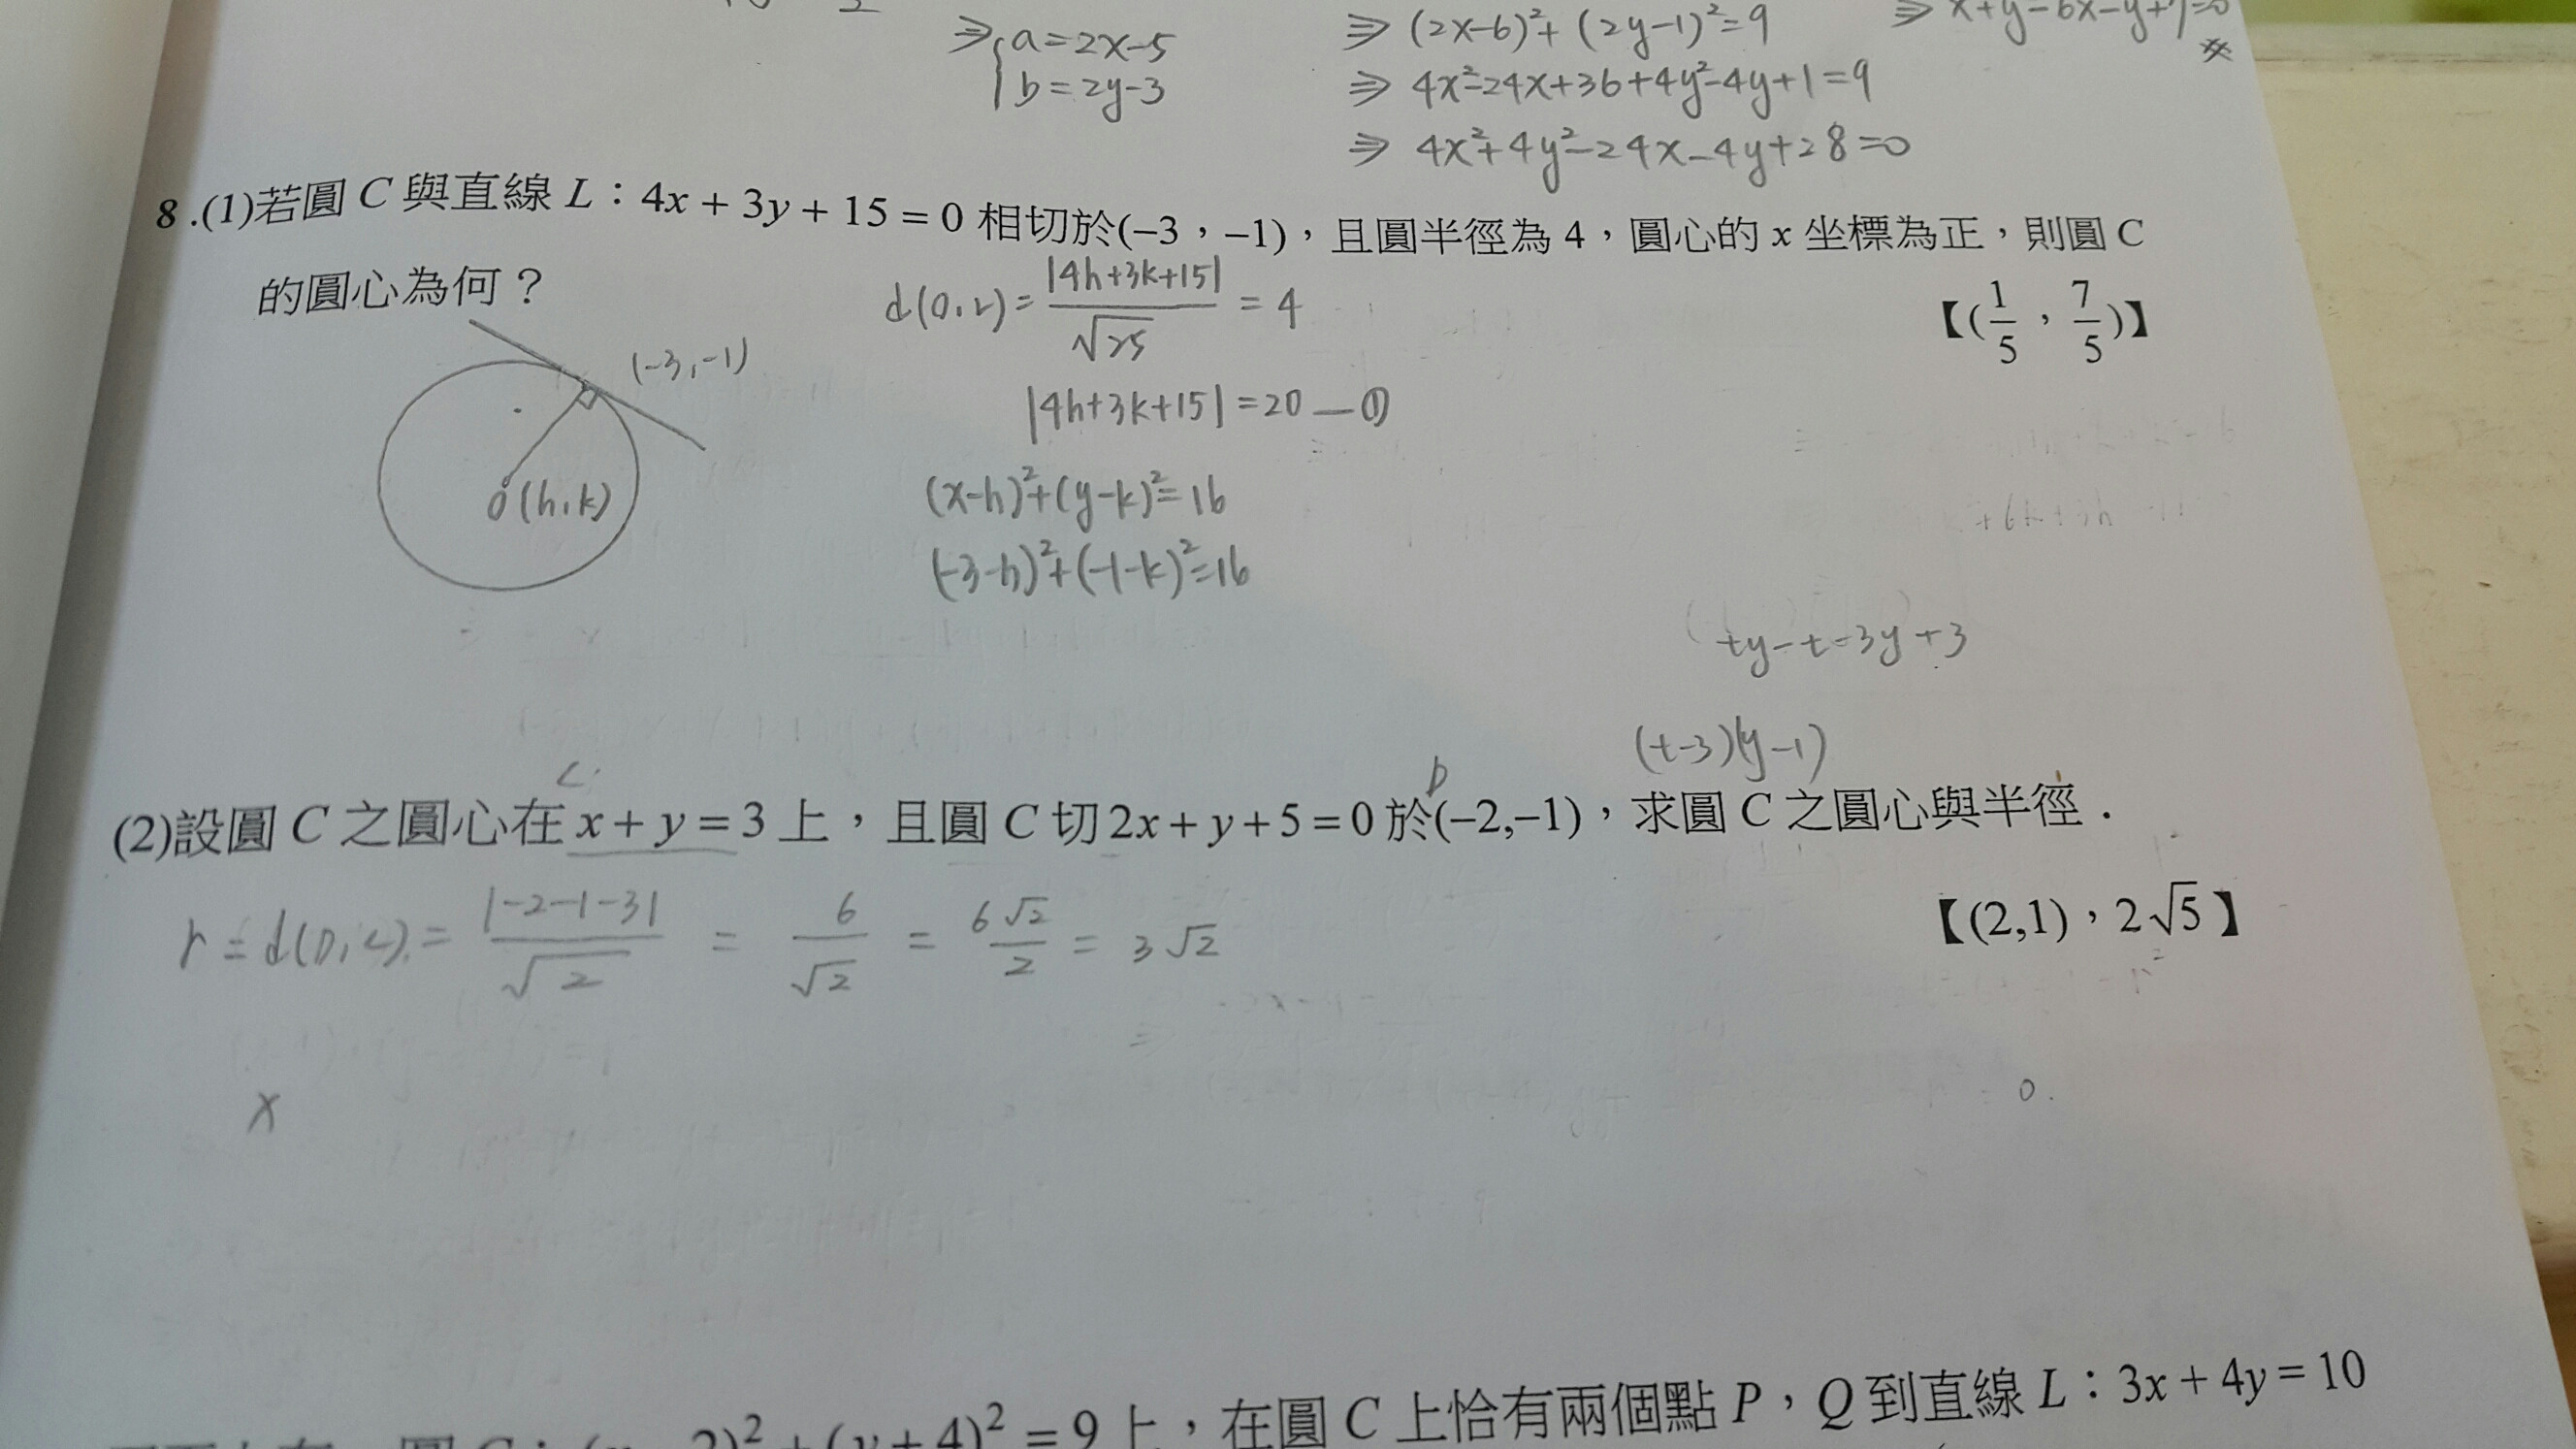 ⇒ { a=2x-5
b=2y-3
⇒ (2x-6)²+(2y-1)²=9
⇒ 4x²-24x+36+4y²-4y+1=9
⇒ 4x²+4y²-24x-4y+28=0
8.(1)若圓 C 與直線 L：4x + 3y + 15 = 0 相切於(−3，−1)，且圓半徑為 4，圓心的 x 坐標為正，則圓 C
的圓心為何？
【(1/5，7/5)】
d(O,L)=|4h+3k+15|/√25 = 4
(-3,-1)
|4h+3k+15|=20 —①
O(h,k)
(x-h)²+(y-k)²=16
(-3-h)²+(-1-k)²=16
ty-t=3y+3
(t-3)(y-1)
(2)設圓 C 之圓心在 x + y = 3 上，且圓 C 切 2x + y + 5 = 0 於(−2,−1)，求圓 C 之圓心與半徑．
【(2,1)，2√5】
r=d(D,L)=|-2-1-3|/√2 = 6/√2 = 6√2/2 = 3√2
x
0.
+ (y + 4)² = 9 上，在圓 C 上恰有兩個點 P，Q 到直線 L：3x + 4y = 10